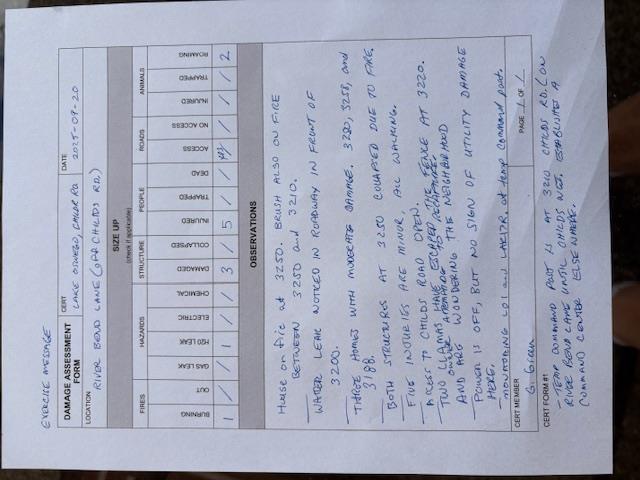 EXERCISE MESSAGE
DAMAGE ASSESSMENT FORM
CERT
LAKE OSWEGO, CHILDS RD.
DATE
2025-09-20
LOCATION
RIVER BEND LANE (OFF CHILDS RD.)
SIZE UP
(check if applicable)
FIRES HAZARDS STRUCTURE PEOPLE ROADS ANIMALS
BURNING OUT GAS LEAK H2O LEAK ELECTRIC CHEMICAL DAMAGED COLLAPSED INJURED TRAPPED DEAD ACCESS NO ACCESS INJURED TRAPPED ROAMING
1 / / 1 / / 3 / 5 / / yes / / / 2
OBSERVATIONS
House on fire at 3250. BRUSH ALSO ON FIRE
BETWEEN 3250 and 3210.
WATER LEAK NOTICED IN ROADWAY IN FRONT OF
3200.
THREE HOMES WITH MODERATE DAMAGE. 3220, 3258, and
3188.
BOTH STRUCTURES AT 3250 COLLAPSED DUE TO FIRE.
FIVE INJURIES ARE MINOR, ALL WALKING.
ACCESS TO CHILDS ROAD OPEN.
TWO LLAMAS HAVE ESCAPED THE FENCE AT 3220.
AND ARE WONDERING THE NEIGHBORHOOD
POWER IS OFF, BUT NO SIGN OF UTILITY DAMAGE
HERE.
monitoring LO1 and at temp command post.
CERT MEMBER
G. Green
PAGE 1 OF 1
CERT FORM #1
TEMP COMMAND POST IS AT 3210 CHILDS RD. (ON
RIVER BEND LANE UNTIL CHILDS NET. ESTABLISHES A
COMMAND CENTER ELSEWHERE.